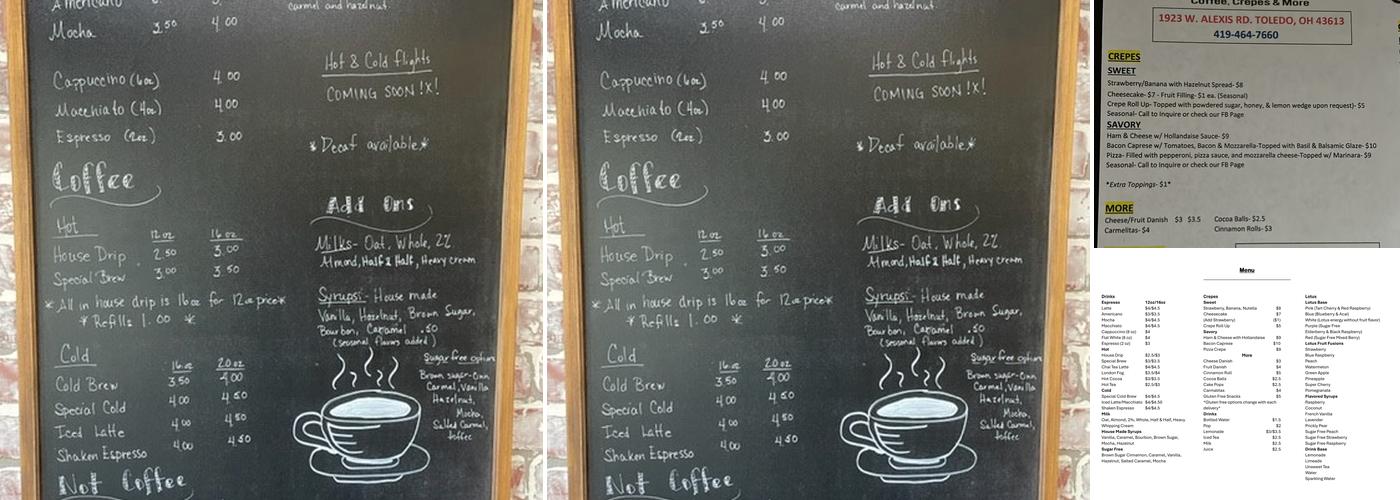 Americano
Mocha 3.50 4.00
Cappuccino (6oz) 4.00
Macchiato (4oz) 4.00
Espresso (2oz) 3.00
Coffee
Hot 12oz 16oz
House Drip 2.50 3.00
Special Brew 3.00 3.50
*All in house drip is 16oz for 12oz price*
*Refills 1.00 *
Cold 16oz 20oz
Cold Brew 3.50 4.00
Special Cold 4.00 4.50
Iced Latte 4.00 4.50
Shaken Espresso 4.00 4.50
Not Coffee
carmel and hazelnut.
Hot & Cold flights
COMING SOON!X!
*Decaf available*
Add Ons
Milks- Oat, Whole, 2%
Almond, Half & Half, Heavy cream
Syrups:- House made
Vanilla, Hazelnut, Brown Sugar,
Bourbon, Caramel .50
(seasonal flavors added)
Sugar free options
Brown sugar-Cinn,
Carmel, Vanilla
Hazelnut,
Mocha,
Salted Carmel,
toffee
Americano
Mocha 3.50 4.00
Cappuccino (6oz) 4.00
Macchiato (4oz) 4.00
Espresso (2oz) 3.00
Coffee
Hot 12oz 16oz
House Drip 2.50 3.00
Special Brew 3.00 3.50
*All in house drip is 16oz for 12oz price*
*Refills 1.00 *
Cold 16oz 20oz
Cold Brew 3.50 4.00
Special Cold 4.00 4.50
Iced Latte 4.00 4.50
Shaken Espresso 4.00 4.50
Not Coffee
carmel and hazelnut.
Hot & Cold flights
COMING SOON!X!
*Decaf available*
Add Ons
Milks- Oat, Whole, 2%
Almond, Half & Half, Heavy cream
Syrups:- House made
Vanilla, Hazelnut, Brown Sugar,
Bourbon, Caramel .50
(seasonal flavors added)
Sugar free options
Brown sugar-Cinn,
Carmel, Vanilla
Hazelnut,
Mocha,
Salted Carmel,
toffee
Coffee, Crepes & More
1923 W. ALEXIS RD. TOLEDO, OH 43613
419-464-7660
CREPES
SWEET
Strawberry/Banana with Hazelnut Spread- $8
Cheesecake- $7 - Fruit Filling- $1 ea. (Seasonal)
Crepe Roll Up- Topped with powdered sugar, honey, & lemon wedge upon request)- $5
Seasonal- Call to Inquire or check our FB Page
SAVORY
Ham & Cheese w/ Hollandaise Sauce- $9
Bacon Caprese w/ Tomatoes, Bacon & Mozzarella-Topped with Basil & Balsamic Glaze- $10
Pizza- Filled with pepperoni, pizza sauce, and mozzarella cheese-Topped w/ Marinara- $9
Seasonal- Call to Inquire or check our FB Page
*Extra Toppings- $1*
MORE
Cheese/Fruit Danish $3 $3.5 Cocoa Balls- $2.5
Carmelitas- $4 Cinnamon Rolls- $3
Menu
Drinks
Espresso 12oz/16oz
Latte $4/$4.5
Americano $3/$3.5
Mocha $4/$4.5
Macchiato $4/$4.5
Cappuccino (6 oz) $4
Flat White (8 oz) $4
Espresso (2 oz) $3
Hot
House Drip $2.5/$3
Special Brew $3/$3.5
Chai Tea Latte $4/$4.5
London Fog $3.5/$4
Hot Cocoa $3/$3.5
Hot Tea $2.5/$3
Cold
Special Cold Brew $4/$4.5
Iced Latte/Macchiato $4/$4.50
Shaken Espresso $4/$4.5
Milk
Oat, Almond, 2%, Whole, Half & Half, Heavy
Whipping Cream
House Made Syrups
Vanilla, Caramel, Bourbon, Brown Sugar,
Mocha, Hazelnut
Sugar Free
Brown Sugar Cinnamon, Caramel, Vanilla,
Hazelnut, Salted Caramel, Mocha
Crepes
Sweet
Strawberry, Banana, Nutella $8
Cheesecake $7
(Add Strawberry) ($1)
Crepe Roll Up $5
Savory
Ham & Cheese with Hollandaise $9
Bacon Caprese $10
Pizza Crepe $9
More
Cheese Danish $3
Fruit Danish $4
Cinnamon Roll $5
Cocoa Balls $2.5
Cake Pops $2.5
Carmelitas $4
Gluten Free Snacks $5
*Gluten free options change with each
delivery*
Drinks
Bottled Water $1.5
Pop $2
Lemonade $3/$3.5
Iced Tea $2.5
Milk $2.5
Juice $2.5
Lotus
Lotus Base
Pink (Tart Cherry & Red Raspberry)
Blue (Blueberry & Acai)
White (Lotus energy without fruit flavor)
Purple (Sugar Free
Elderberry & Black Raspberry)
Red (Sugar Free Mixed Berry)
Lotus Fruit Fusions
Strawberry
Blue Raspberry
Peach
Watermelon
Green Apple
Pineapple
Super Cherry
Pomegranate
Flavored Syrups
Raspberry
Coconut
French Vanilla
Lavender
Prickly Pear
Sugar Free Peach
Sugar Free Strawberry
Sugar Free Raspberry
Drink Base
Lemonade
Limeade
Unsweet Tea
Water
Sparkling Water